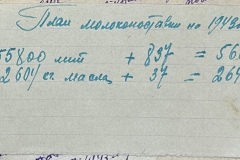 План молокопоставки на 1943
55800 лит + 837 = 56
2604 кг масла + 37 = 264